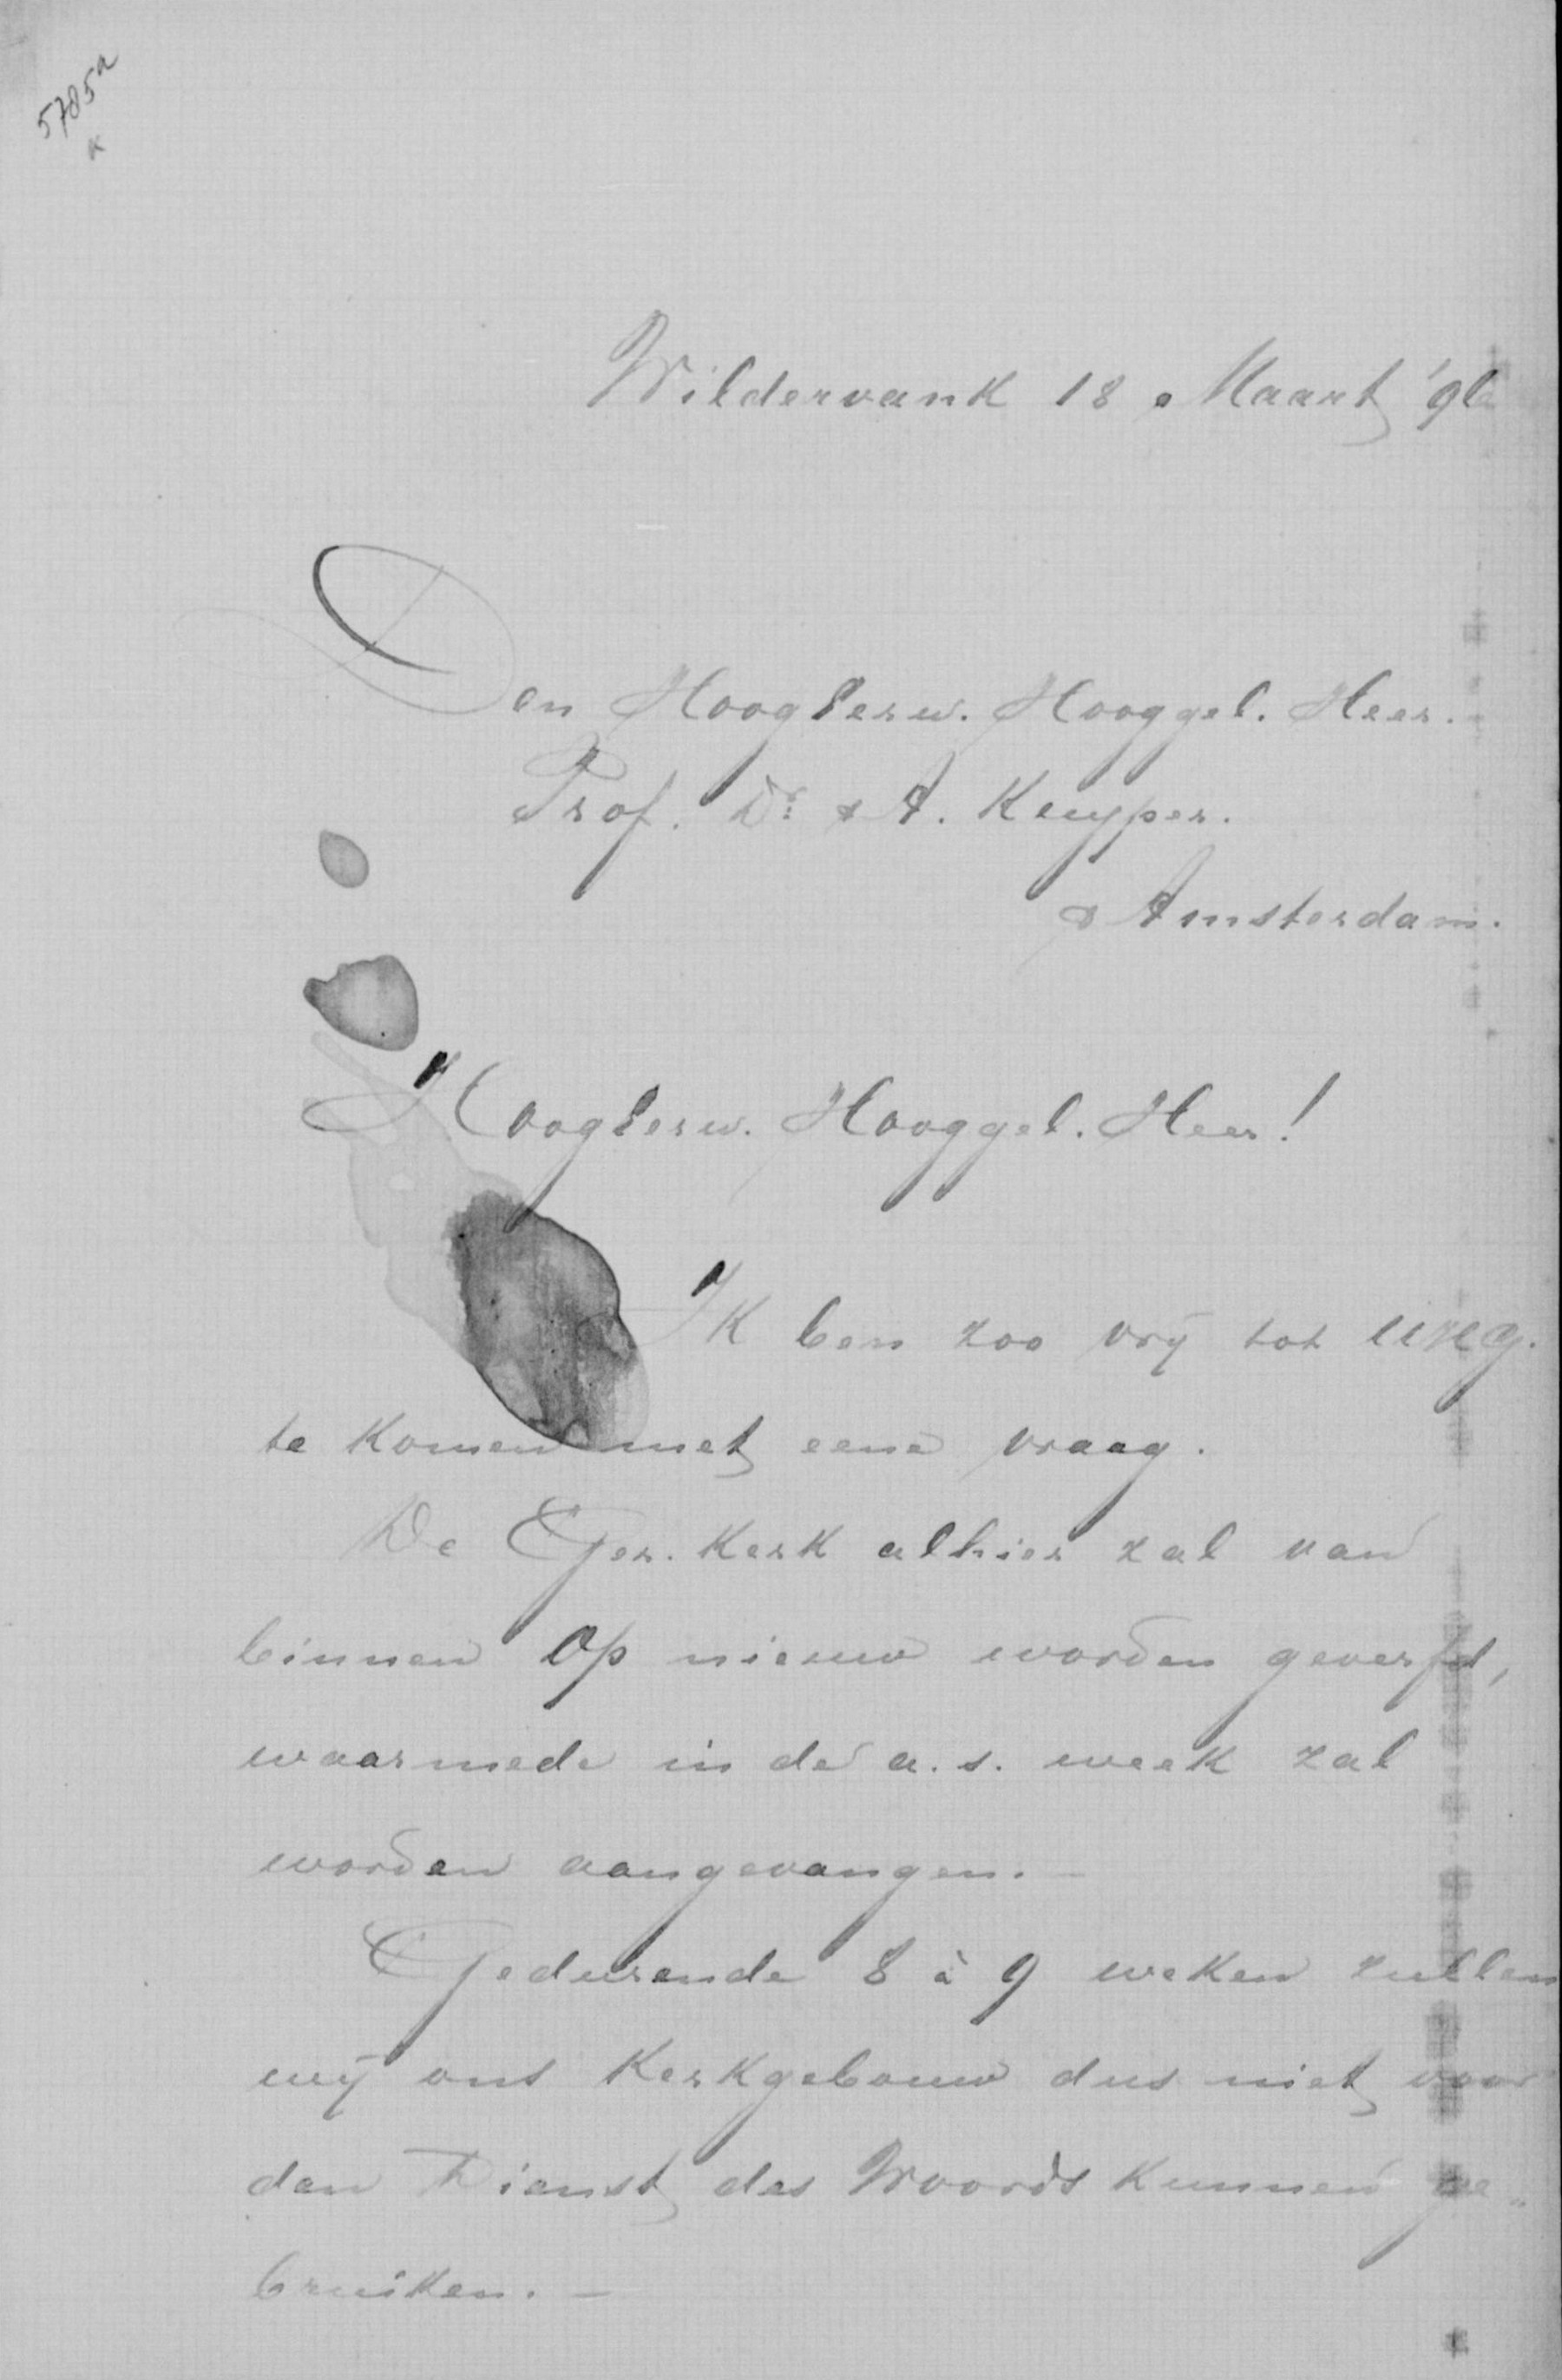 5785a
K
Wildervank 18 Maart '96
Den HoogEerw. Hooggel. Heer.
Prof. Dr. A. Kuyper.
Amsterdam.
HoogEerw. Hooggel. Heer!
Ik ben zoo vrij tot UHG.
te komen met eene vraag.
De Ger. Kerk alhier zal van
binnen op nieuw worden geverfd,
waarmede in de a.s. week zal
worden aangevangen. —
Gedurende 8 à 9 weken zullen
wij ons Kerkgebouw dus niet voor
den Dienst des Woords kunnen ge„
bruiken. —